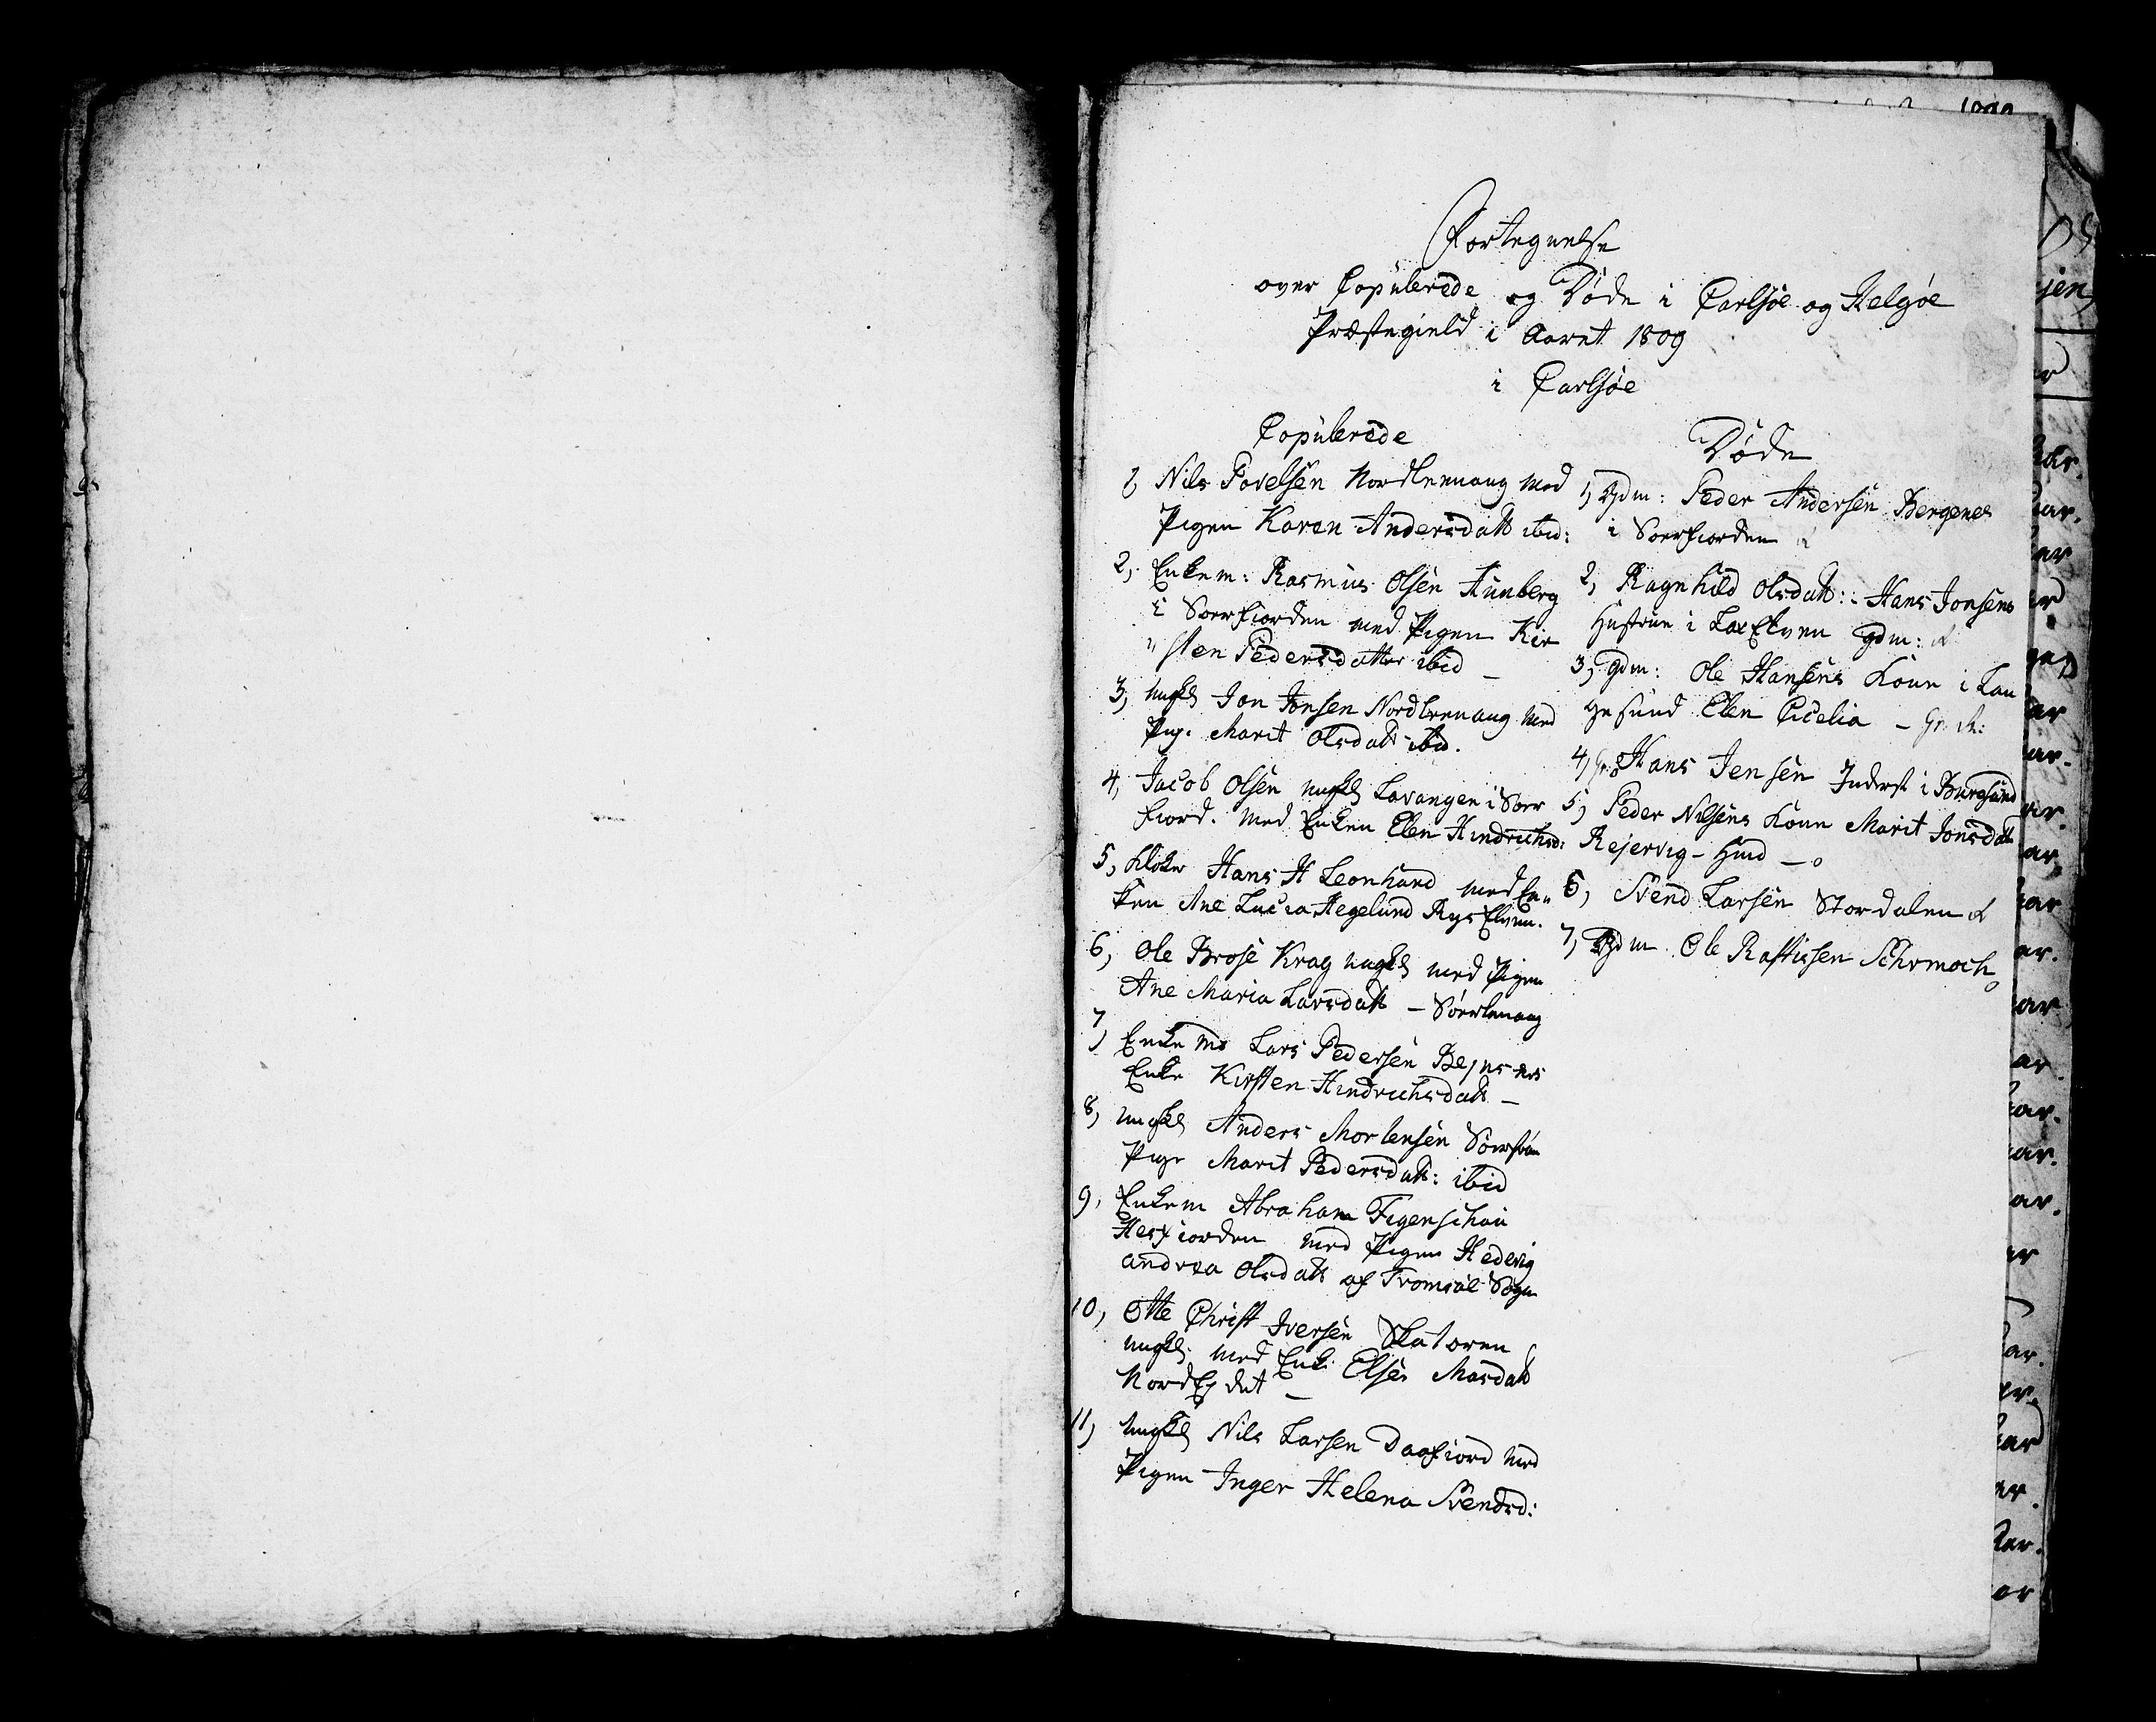 Fortegnelse
over Copulerede og Døde i Carlsøe og Helgøe
Præstegield i Aaret 1809
i Carlsøe
Copulerede
1, Nils Povelsen Nordlenang med
Pigen Karen Andersdatt ibid:
2, Enkem: Rasmus Olsen
i Sørfiorden med Pigen Kir
"sten Pedersdatter ibid –
3, ungk Jon Jonsen Nordlenang med
Pig. Marit Olsdatt ibid.
4, Jacob Olsen ungk Lavangen i Sør
fiord. med Enken Elen Hindrichsd:
5, Kloker Hans H Leonhard med En"
ken Ane Lucia Hegelund Rys Elven.
6, Ole Brose Krag ungk med Pigen
Ane Maria Larsdatt – Sørlenang
7, Enkem Lars Pedersen
Enke Kirsten Hindrichsdatt –
8, ungk Anders Mortensen
Pige Marit Pedersdatt: ibid
9, Enkem Abraham Figenschou
Hesfiorden med Pigen Hedevig
Andrea Olsdatt af Tromsøe Sogn
10, Otte Christ Iversen Skatøren
ungk. med Enk. Elsen Masdatt
Nord Eydet –
11, ungk Nils Larsen Daafiord med
Pigen Inger Helena Svendsd:
Døde
1, Gdm: Peder Andersen Bergenes
i Sørfiorden
2, Ragnhild Olsdatt: – Hans Jonsens
Hustrue i Lax Elven gdm:
3, Gdm: Ole Hansens Kone i Lan
gesund Elen Cicelia –
4, Hans Jensen Inderst i
5, Peder Nilsens Kone Marit Jonsdatt
Rejervig – Hmd –
6, Svend Larsen Stordalen
7, Gdm Ole Rastissen